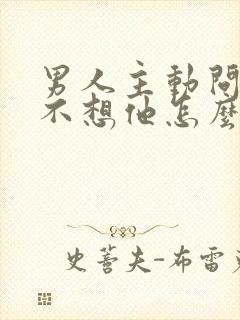 男人主動問
不想他怎麼
史蒈夫-布雷